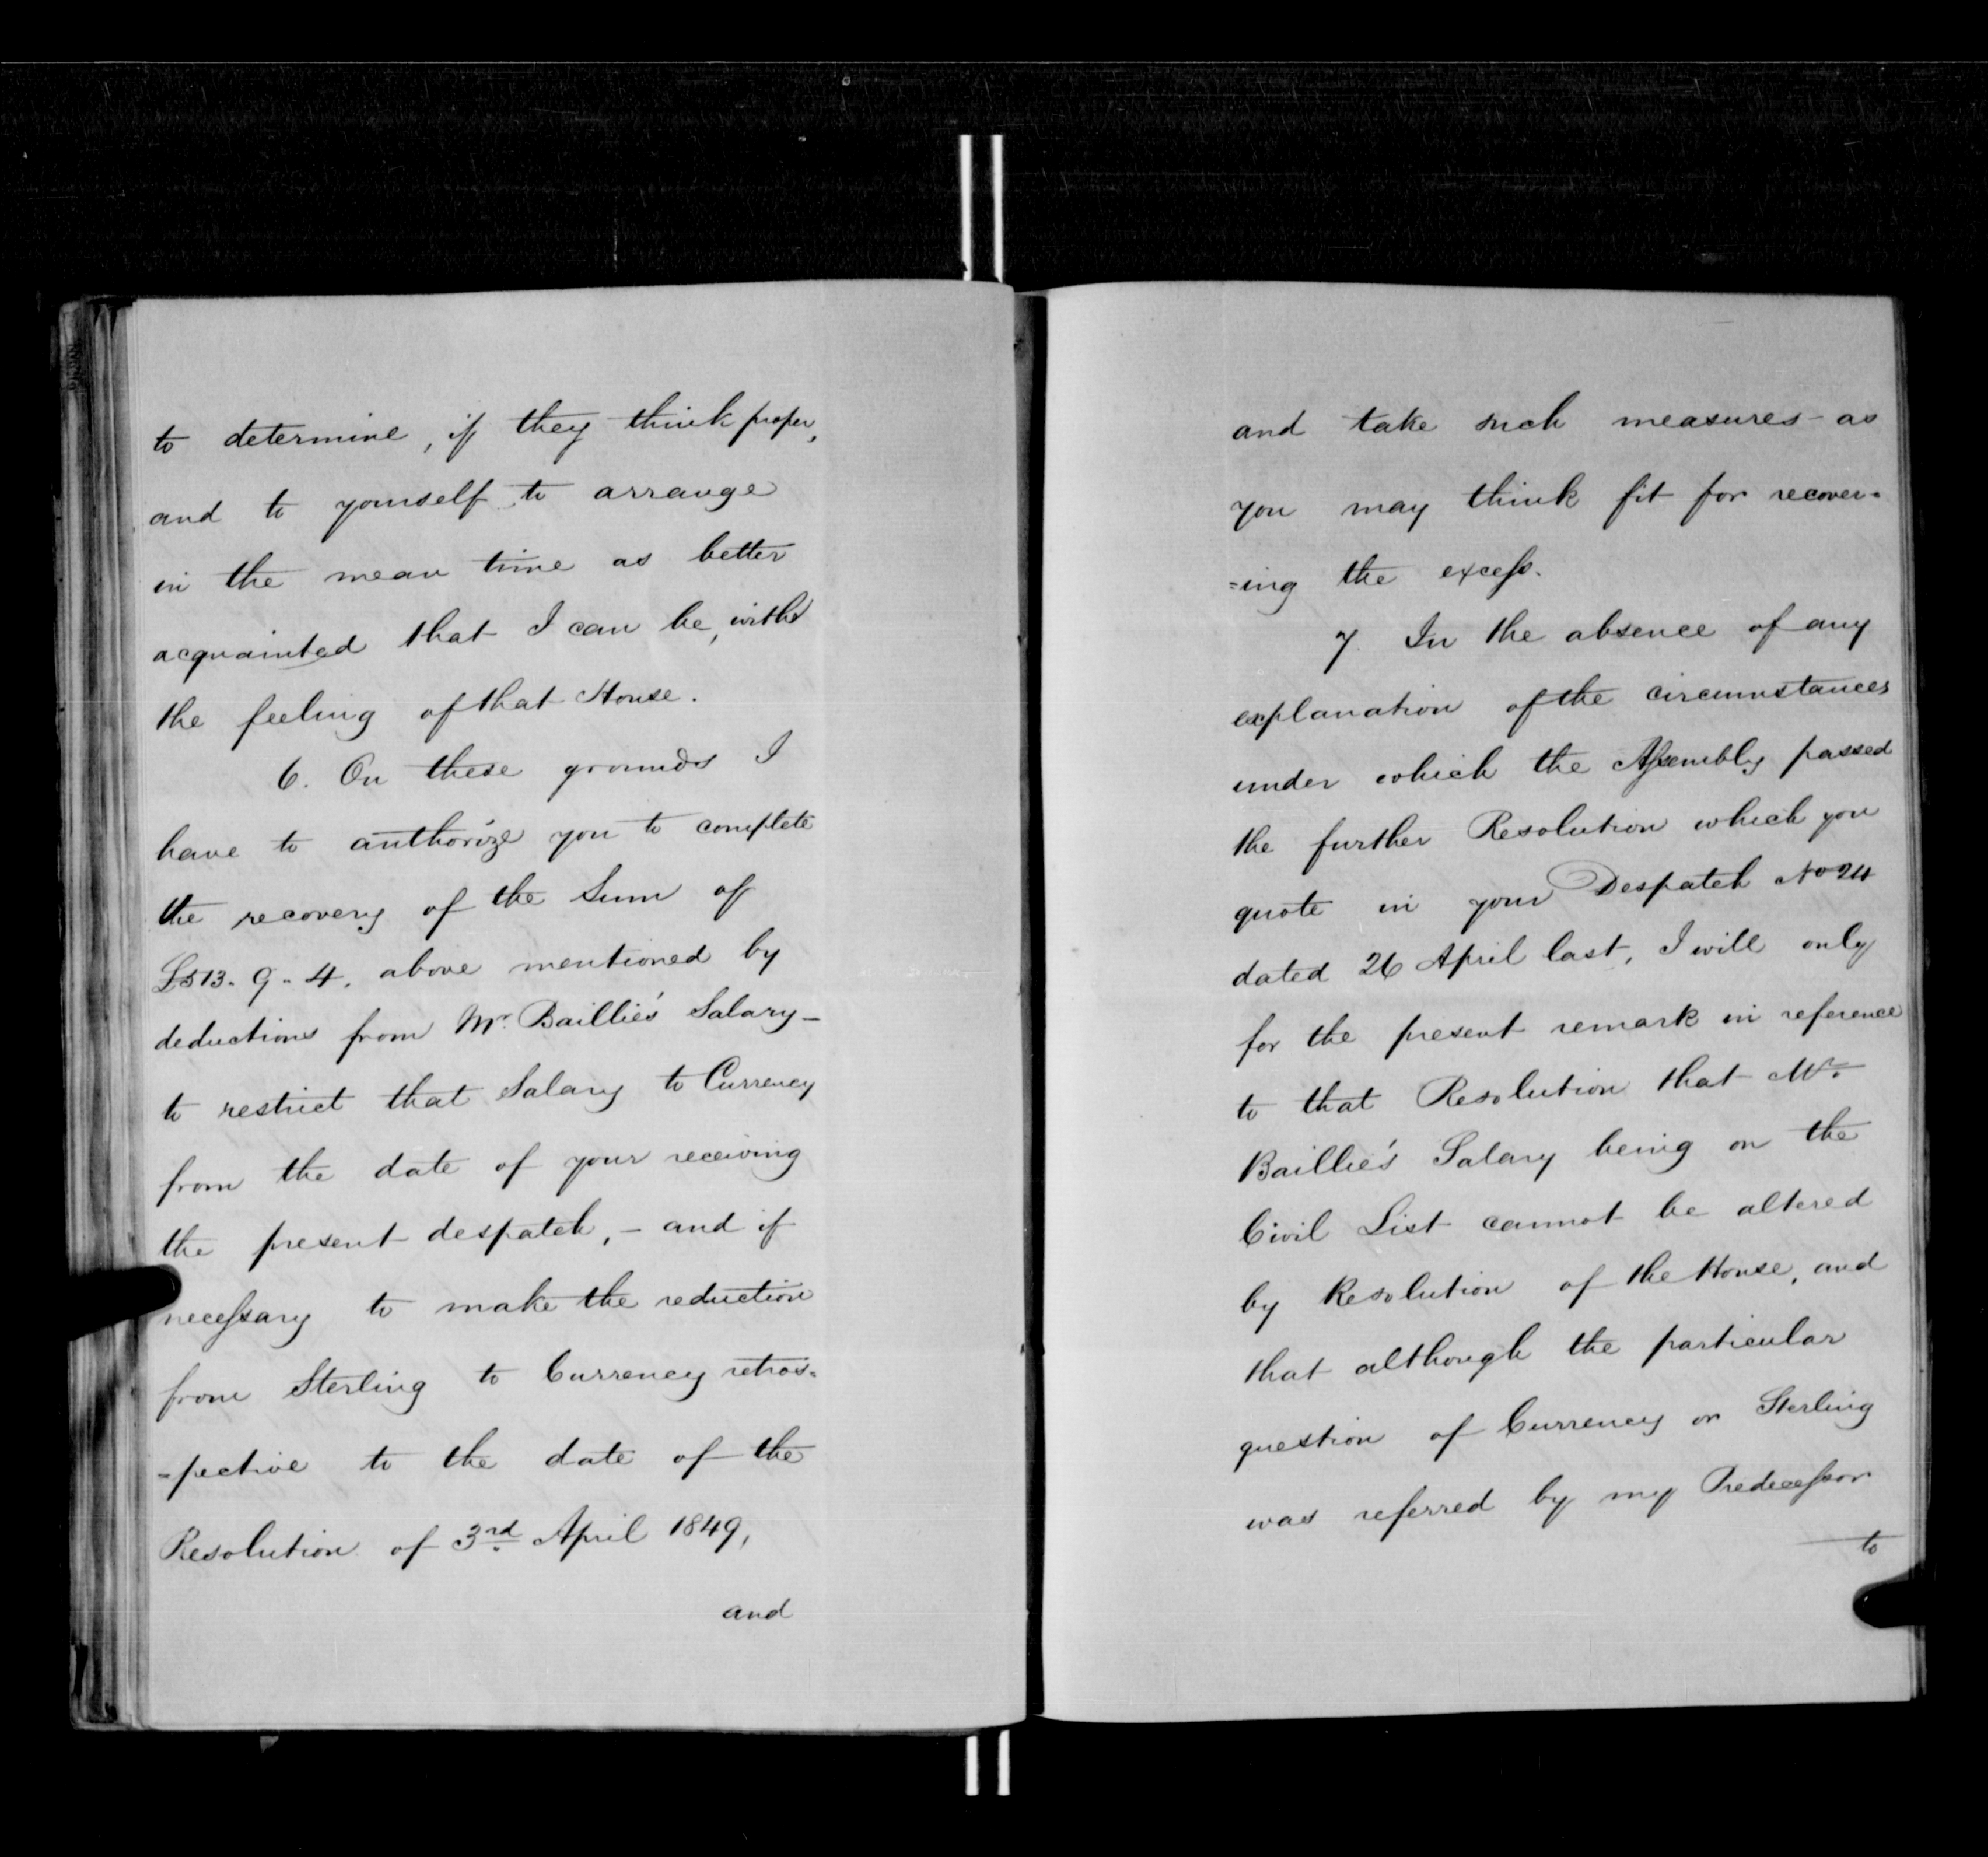 to determine, if they think proper,
and to yourself to arrange
in the mean time as better
acquainted that I can be, with
the feeling of that House.
6. On these grounds I
have to authorize you to complete
the recovery of the Sum of
£513. 9. 4, above mentioned by
deductions from Mr. Baillie's Salary –
to restrict that Salary to Currency
from the date of your receiving
the present despatch, – and if
necessary to make the reduction
from Sterling to Currency retros=
=pective to the date of the
Resolution of 3rd April 1849,
and
and take such measures as
you may think fit for recover=
=ing the excess.
7. In the absence of any
explanation of the circumstances
under which the Assembly passed
the further Resolution which you
quote in your Despatch No 24
dated 26 April last, I will only
for the present remark in reference
to that Resolution that Mr.
Baillie's Salary being on the
Civil List cannot be altered
by Resolution of the House, and
that although the particular
question of Currency or Sterling
was referred by my Predecessor
to